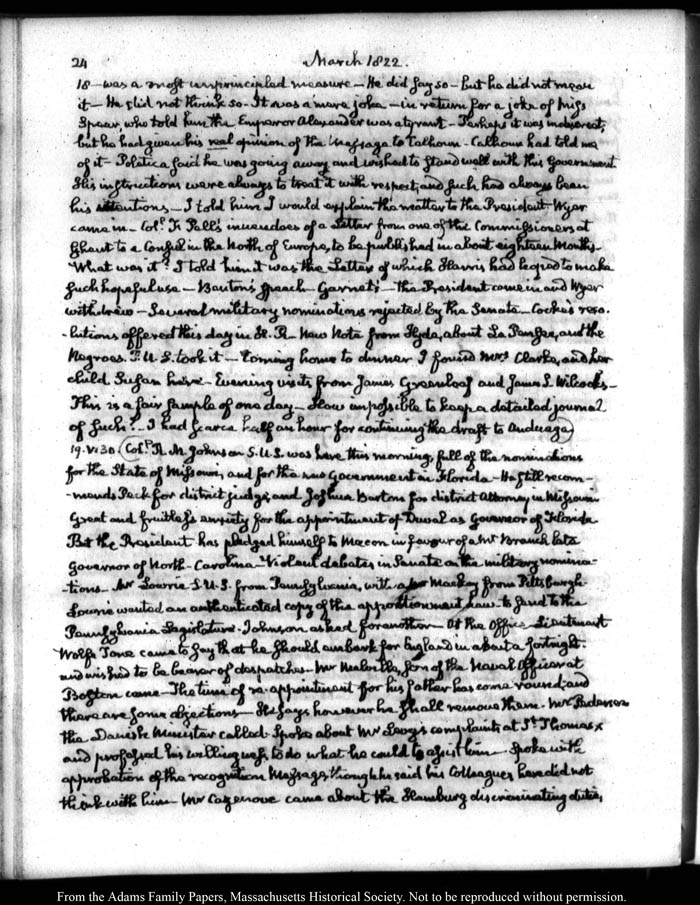 24 March 1822.
18 — was a most unprincipled measure — He did say so — but he did not mean
it — He did not think so — It was a mere joke — in return for a joke of Miss
Spear, who told him the Emperor Alexander was a tyrant — Perhaps it was indiscreet,
but he had given his real opinion of the Message to Calhoun — Calhoun had told me
of it — Politica said he was going away and wished to stand well with this Government
His instructions were always to treat it with respect, and such had always been
his intentions — I told him I would explain the matter to the President — Wyer
came in — Coll. Pell's inuendoes of a Letter from one of the Commissioners at
Ghent to a Consul in the North of Europe, to be published in about eighteen Months —
What was it? I told him it was the Letter of which Harris had hoped to make
such hopeful use — Barton's speech — Garnet's — the President came in and Wyer
withdrew — Several military nominations rejected by the Senate — Cocke's reso-
-lutions offered this day in H. R. New Note from Hyde, about La Pensée, and the
Negroes. P. U. S. took it — Coming home to dinner I found Mrs. Clarke, and her
child Susan here — Evening visits from James Greenleaf and James S. Wilcocks —
This is a fair sample of one day — How impossible to keep a detailed journal
of such? — I had scarce half an hour for continuing the draft to Anduaga
19. VI:30. Coll. R. M. Johnson S.U.S. was here this morning, full of the nominations
for the State of Missouri, and for the new Government in Florida — He still recom-
-mends Peck for district judge, and Joshua Barton for district Attorney in Missouri
Great and fruitless anxiety for the appointment of Duval as Governor of Florida
But the President has pledged himself to Macon in favour of a Mr Branch late
Governor of North-Carolina — Violent debates in Senate on the military nomina-
-tions. Mr Lowrie S.U.S. from Pennsylvania, with a Mr Mackay from Pittsburgh
Lowrie wanted an authenticated copy of the apportionment Law — to send to the
Pennsylvania Legislature. Johnson asked for another — At the Office Lieutenant
Wolfe Tone came to say that he should embark for England in about a fortnight.
and wished to be bearer of despatches. Mr Melville, son of the Naval Officer at
Boston came — The time of re-appointment for his father has come round; and
there are some objections — He says however he shall remove them. Mr Pedersen
the Danish Minister called. Spoke about Mr Levy's complaints at St. Thomas,
and professed his willingness to do what he could to assist him — Spoke with
approbation of the recognition Message, though he said his Colleagues here did not
think with him — Mr Cazenove came about the Hamburg discriminating duties,
From the Adams Family Papers, Massachusetts Historical Society. Not to be reproduced without permission.